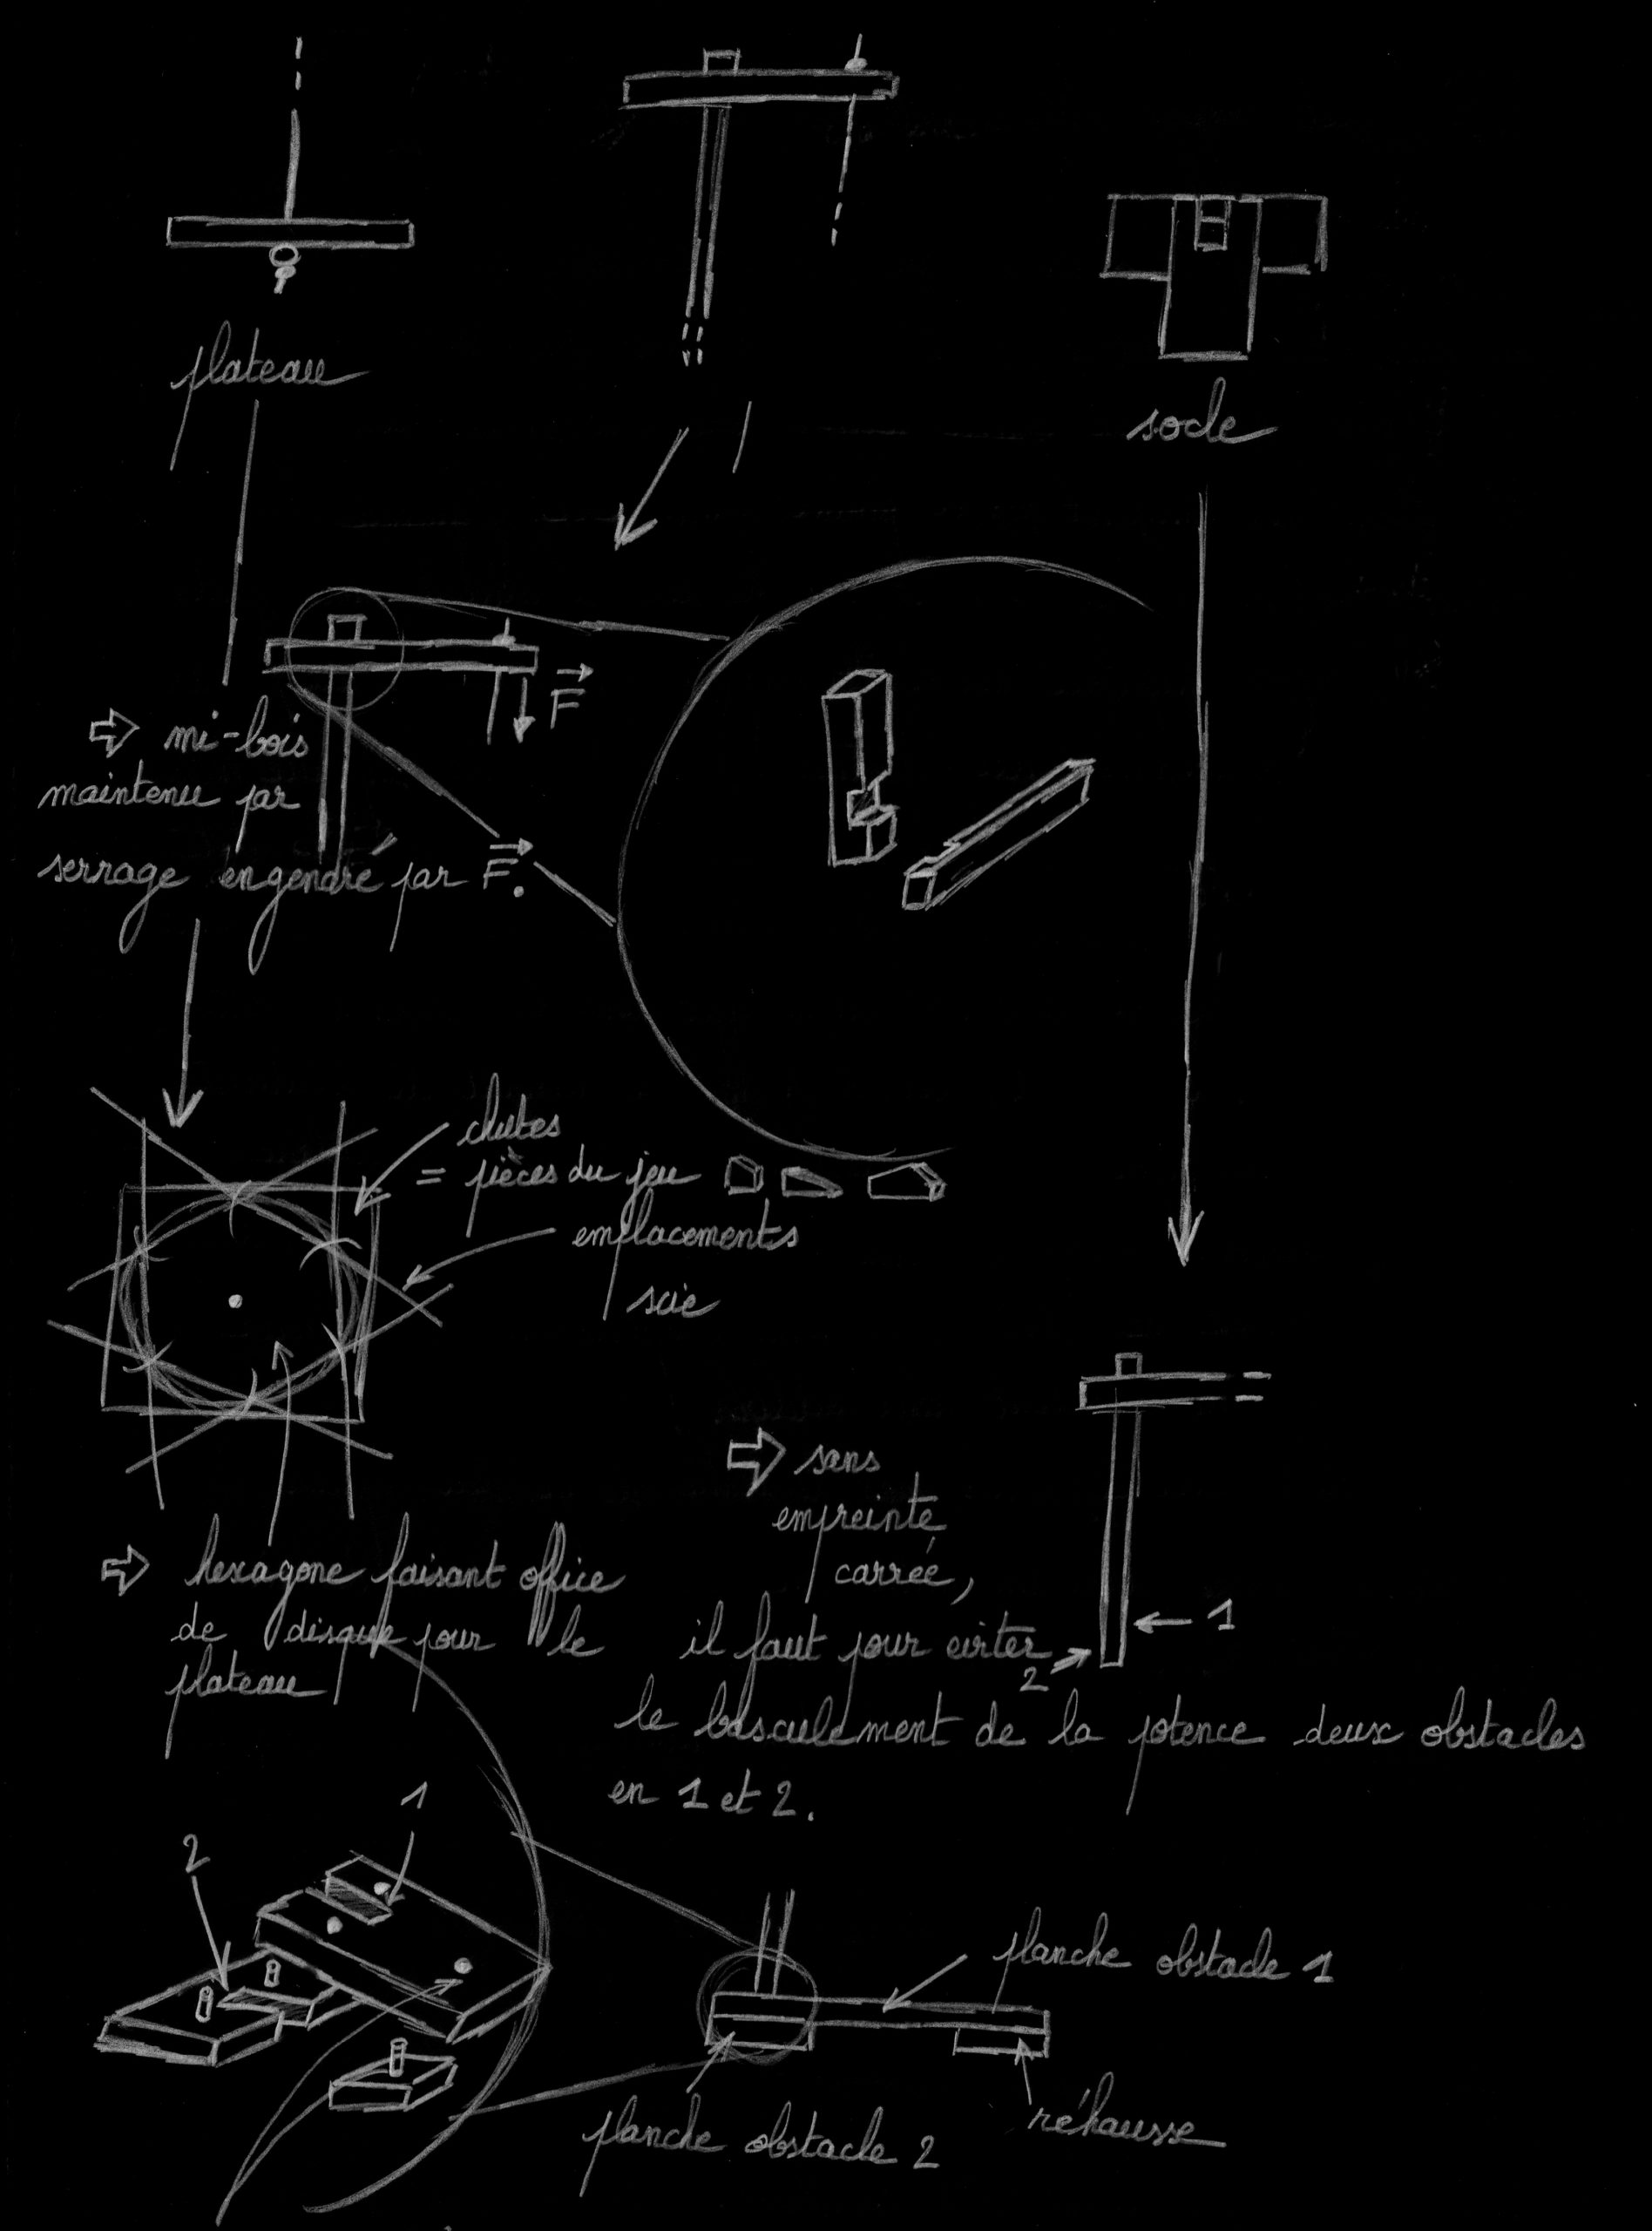 plateau
socle
F
⇨ mi-bois
maintenu par
serrage engendré par F.
chutes
= pièces du jeu
emplacements
scie
⇨ hexagone faisant office
de disque pour le
plateau
⇨ sans
empreinte
carrée,
il faut pour eviter
le basculement de la potence deux obstacles
en 1 et 2.
1
2
1
2
planche obstacle 1
planche obstacle 2
réhausse